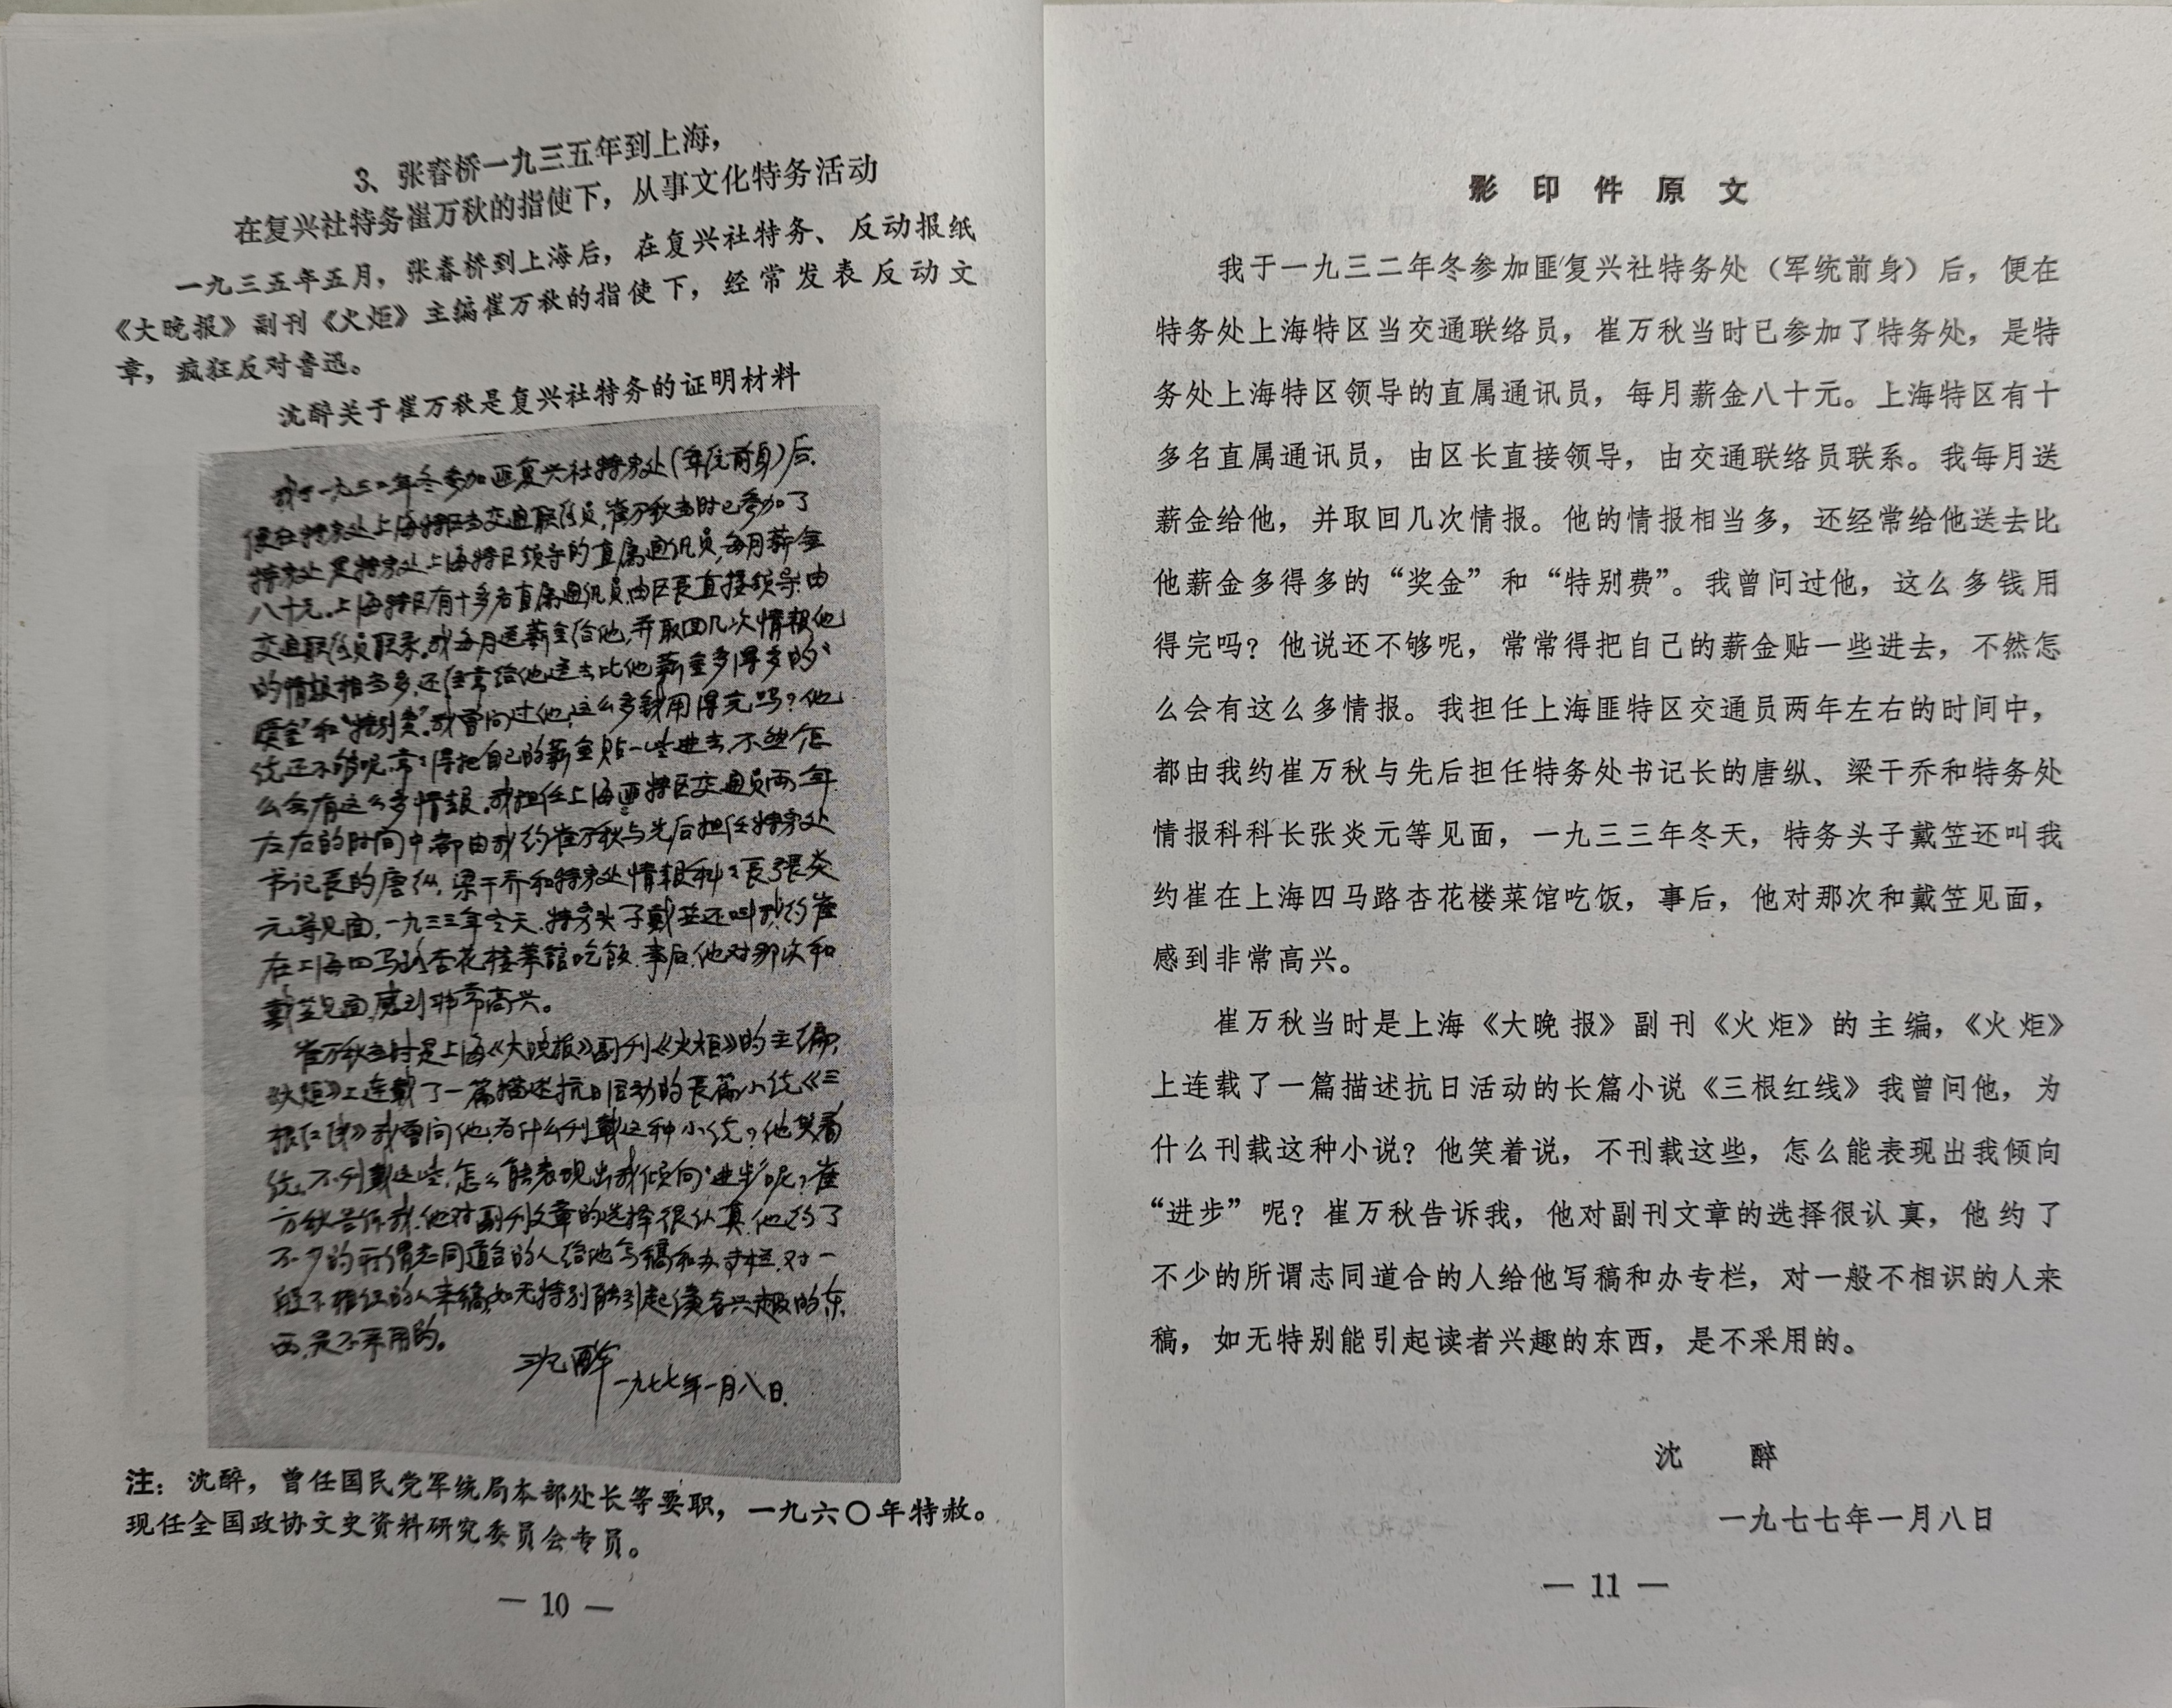 3、张春桥一九三五年到上海，
在复兴社特务崔万秋的指使下，从事文化特务活动
一九三五年五月，张春桥到上海后，在复兴社特务、反动报纸
《大晚报》副刊《火炬》主编崔万秋的指使下，经常发表反动文
章，疯狂反对鲁迅。
沈醉关于崔万秋是复兴社特务的证明材料
我于一九三二年冬参加匪复兴社特务处（军统前身）后，
便在特务处上海特区当交通联络员，崔万秋当时已参加了
特务处，是特务处上海特区领导的直属通讯员，每月薪金
八十元。上海特区有十多名直属通讯员，由区长直接领导，由
交通联络员联系。我每月送薪金给他，并取回几次情报。他
的情报相当多，还经常给他送去比他薪金多得多的“
奖金”和“特别费”。我曾问过他，这么多钱用得完吗？他
说还不够呢，常々得把自己的薪金贴一些进去，不然怎
么会有这么多情报。我担任上海匪特区交通员两年
左右的时间中，都由我约崔万秋与先后担任特务处
书记長的唐纵、梁干乔和特务处情报科々長張炎
元等见面，一九三三年冬天，特务头子戴笠还叫我约崔
在上海四马路杏花楼菜館吃饭，事后，他对那次和
戴笠见面，感到非常高兴。
崔万秋当时是上海《大晚报》副刊《火炬》的主编，
《火炬》上连载了一篇描述抗日活动的長篇小说《三
根红线》我曾问他，为什么刊载这种小说？他笑着
说，不刊载这些，怎么能表现出我倾向“进步”呢？崔
万秋告诉我，他对副刊文章的选择很认真，他约了
不少的所谓志同道合的人给他写稿和办专栏，对一
般不相识的人来稿，如无特别能引起读者兴趣的东
西，是不采用的。
沈醉
一九七七年一月八日.
注：沈醉，曾任国民党军统局本部处长等要职，一九六〇年特赦。
现任全国政协文史资料研究委员会专员。
— 10 —
影印件原文
我于一九三二年冬参加匪复兴社特务处（军统前身）后，便在
特务处上海特区当交通联络员，崔万秋当时已参加了特务处，是特
务处上海特区领导的直属通讯员，每月薪金八十元。上海特区有十
多名直属通讯员，由区长直接领导，由交通联络员联系。我每月送
薪金给他，并取回几次情报。他的情报相当多，还经常给他送去比
他薪金多得多的“奖金”和“特别费”。我曾问过他，这么多钱用
得完吗？他说还不够呢，常常得把自己的薪金贴一些进去，不然怎
么会有这么多情报。我担任上海匪特区交通员两年左右的时间中，
都由我约崔万秋与先后担任特务处书记长的唐纵、梁干乔和特务处
情报科科长张炎元等见面，一九三三年冬天，特务头子戴笠还叫我
约崔在上海四马路杏花楼菜馆吃饭，事后，他对那次和戴笠见面，
感到非常高兴。
崔万秋当时是上海《大晚报》副刊《火炬》的主编，《火炬》
上连载了一篇描述抗日活动的长篇小说《三根红线》我曾问他，为
什么刊载这种小说？他笑着说，不刊载这些，怎么能表现出我倾向
“进步”呢？崔万秋告诉我，他对副刊文章的选择很认真，他约了
不少的所谓志同道合的人给他写稿和办专栏，对一般不相识的人来
稿，如无特别能引起读者兴趣的东西，是不采用的。
沈醉
一九七七年一月八日
— 11 —